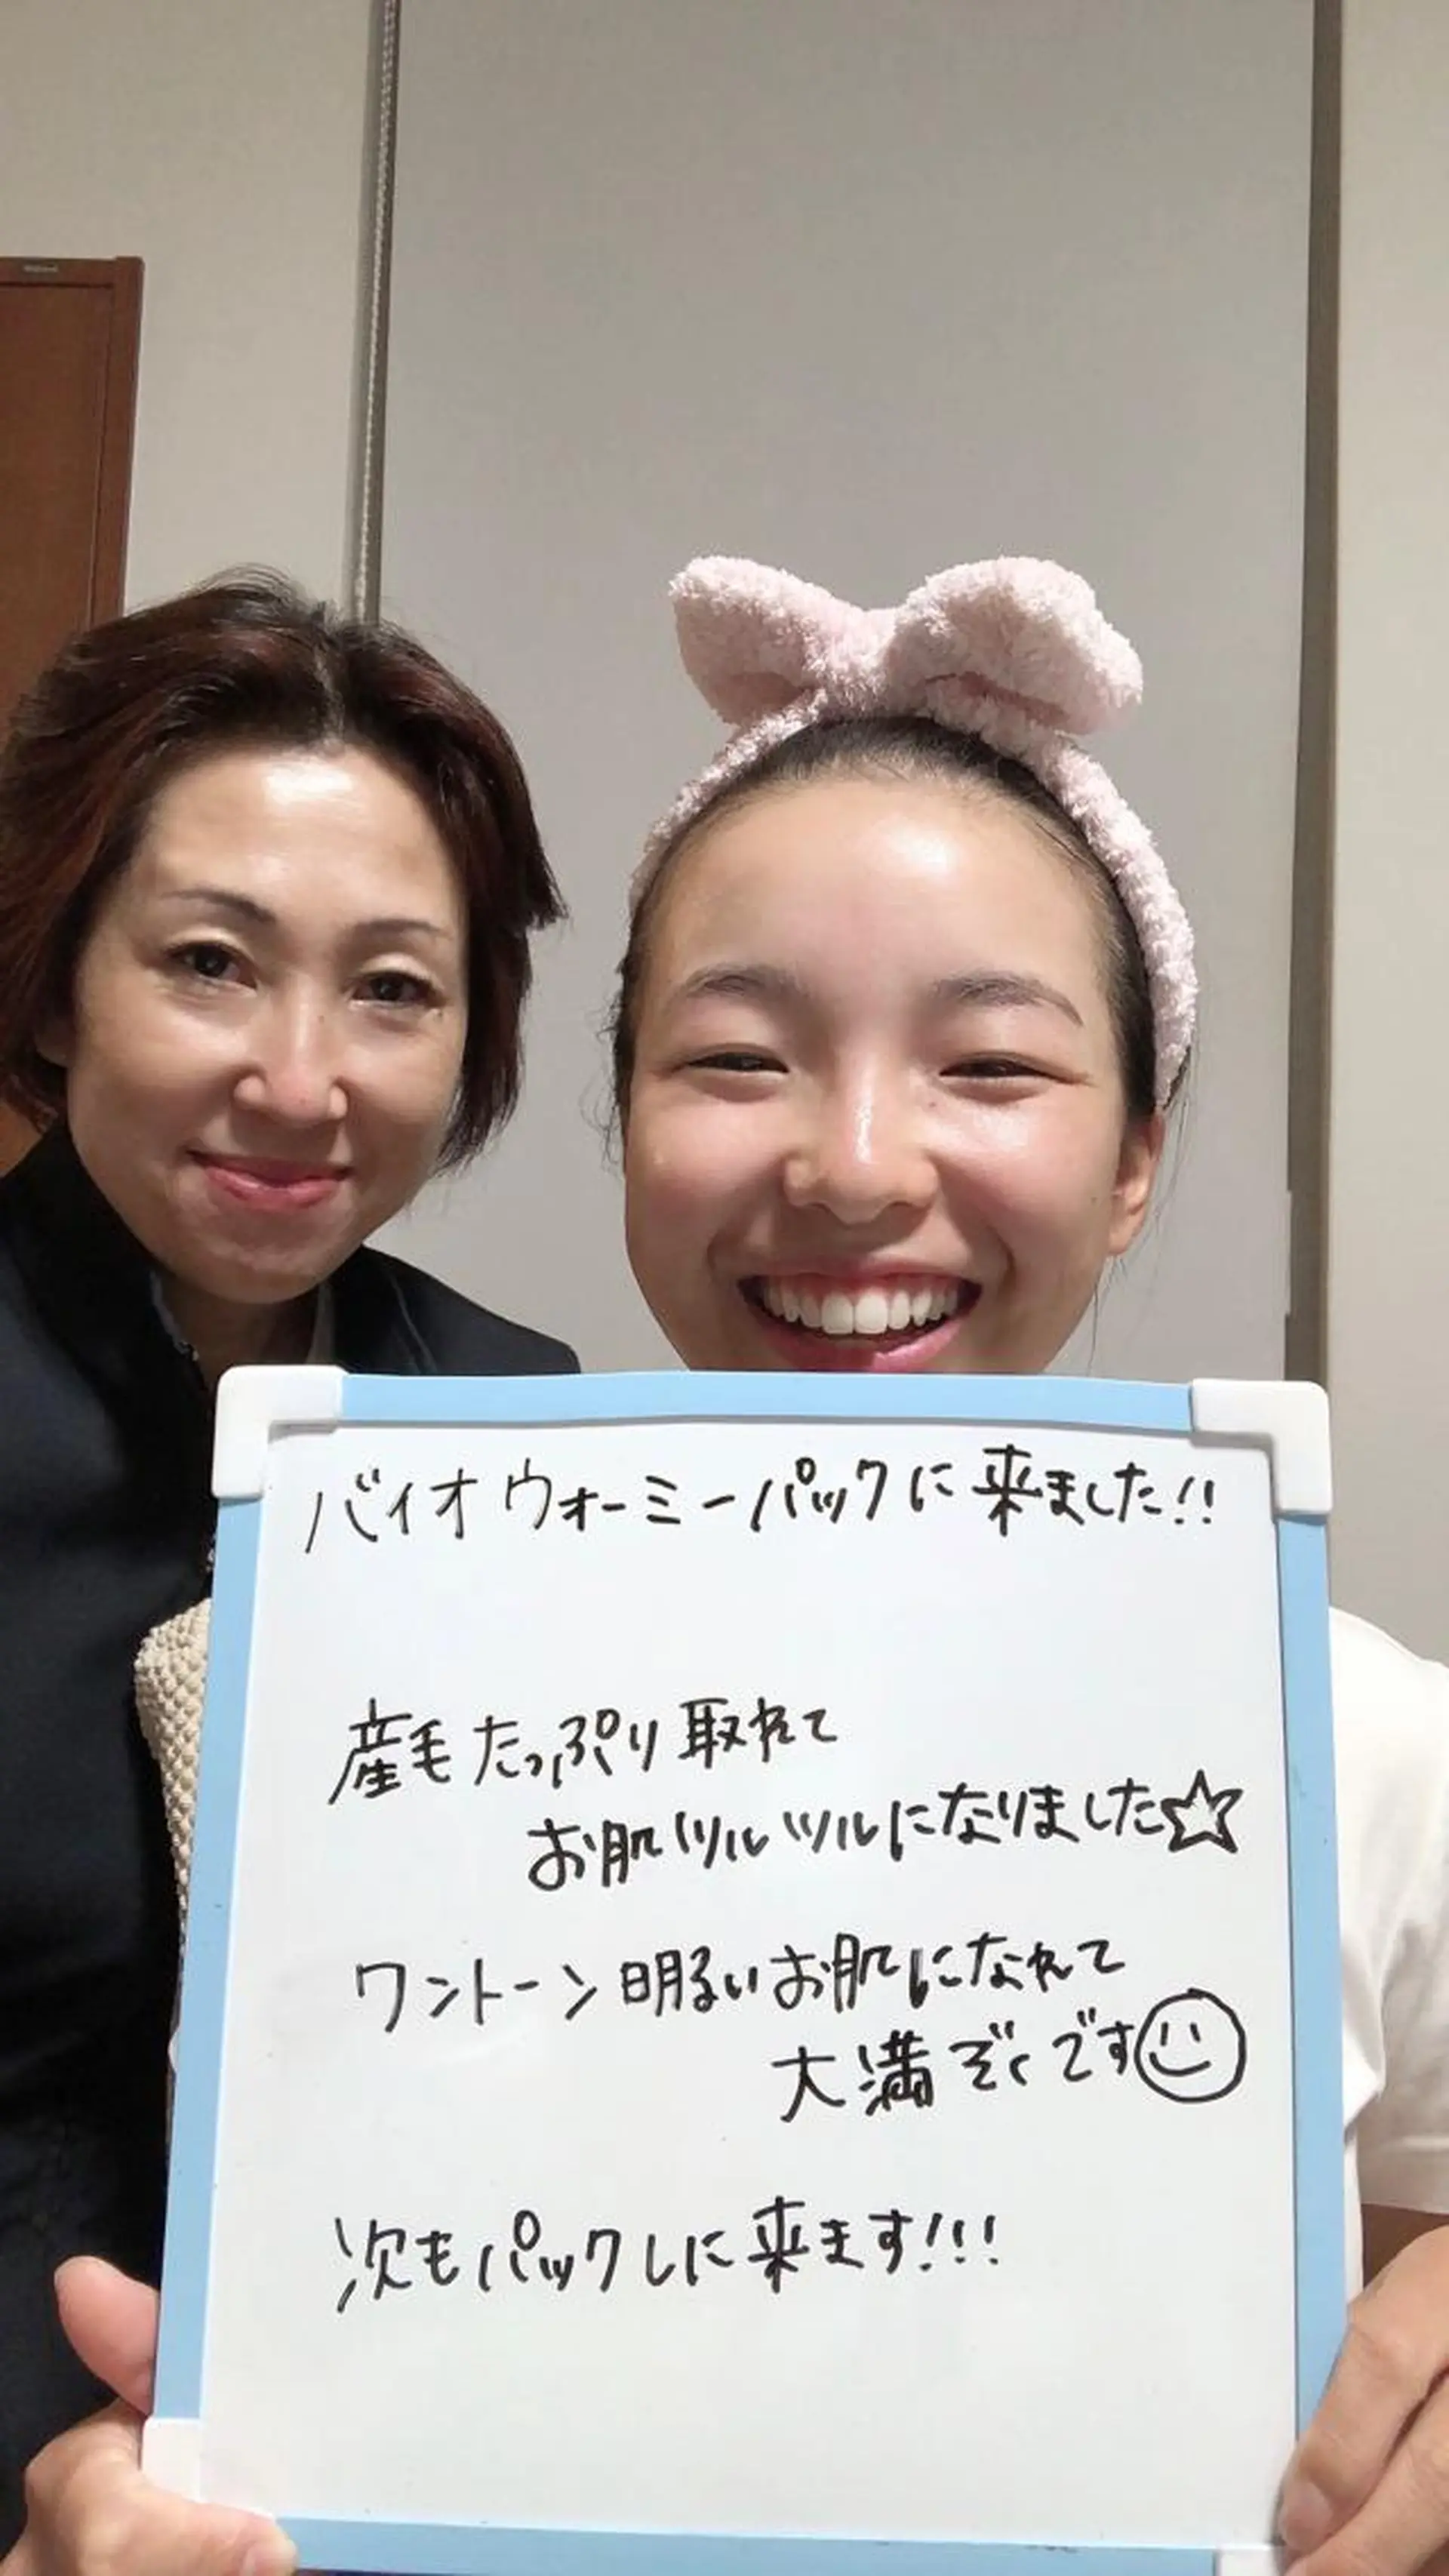 バイオウォーミーパックに来ました!!
産毛たっぷり取れて
お肌ツルツルになりました☆
ワントーン明るいお肌になれて
大満ぞくです☺
次もパックしに来ます!!!